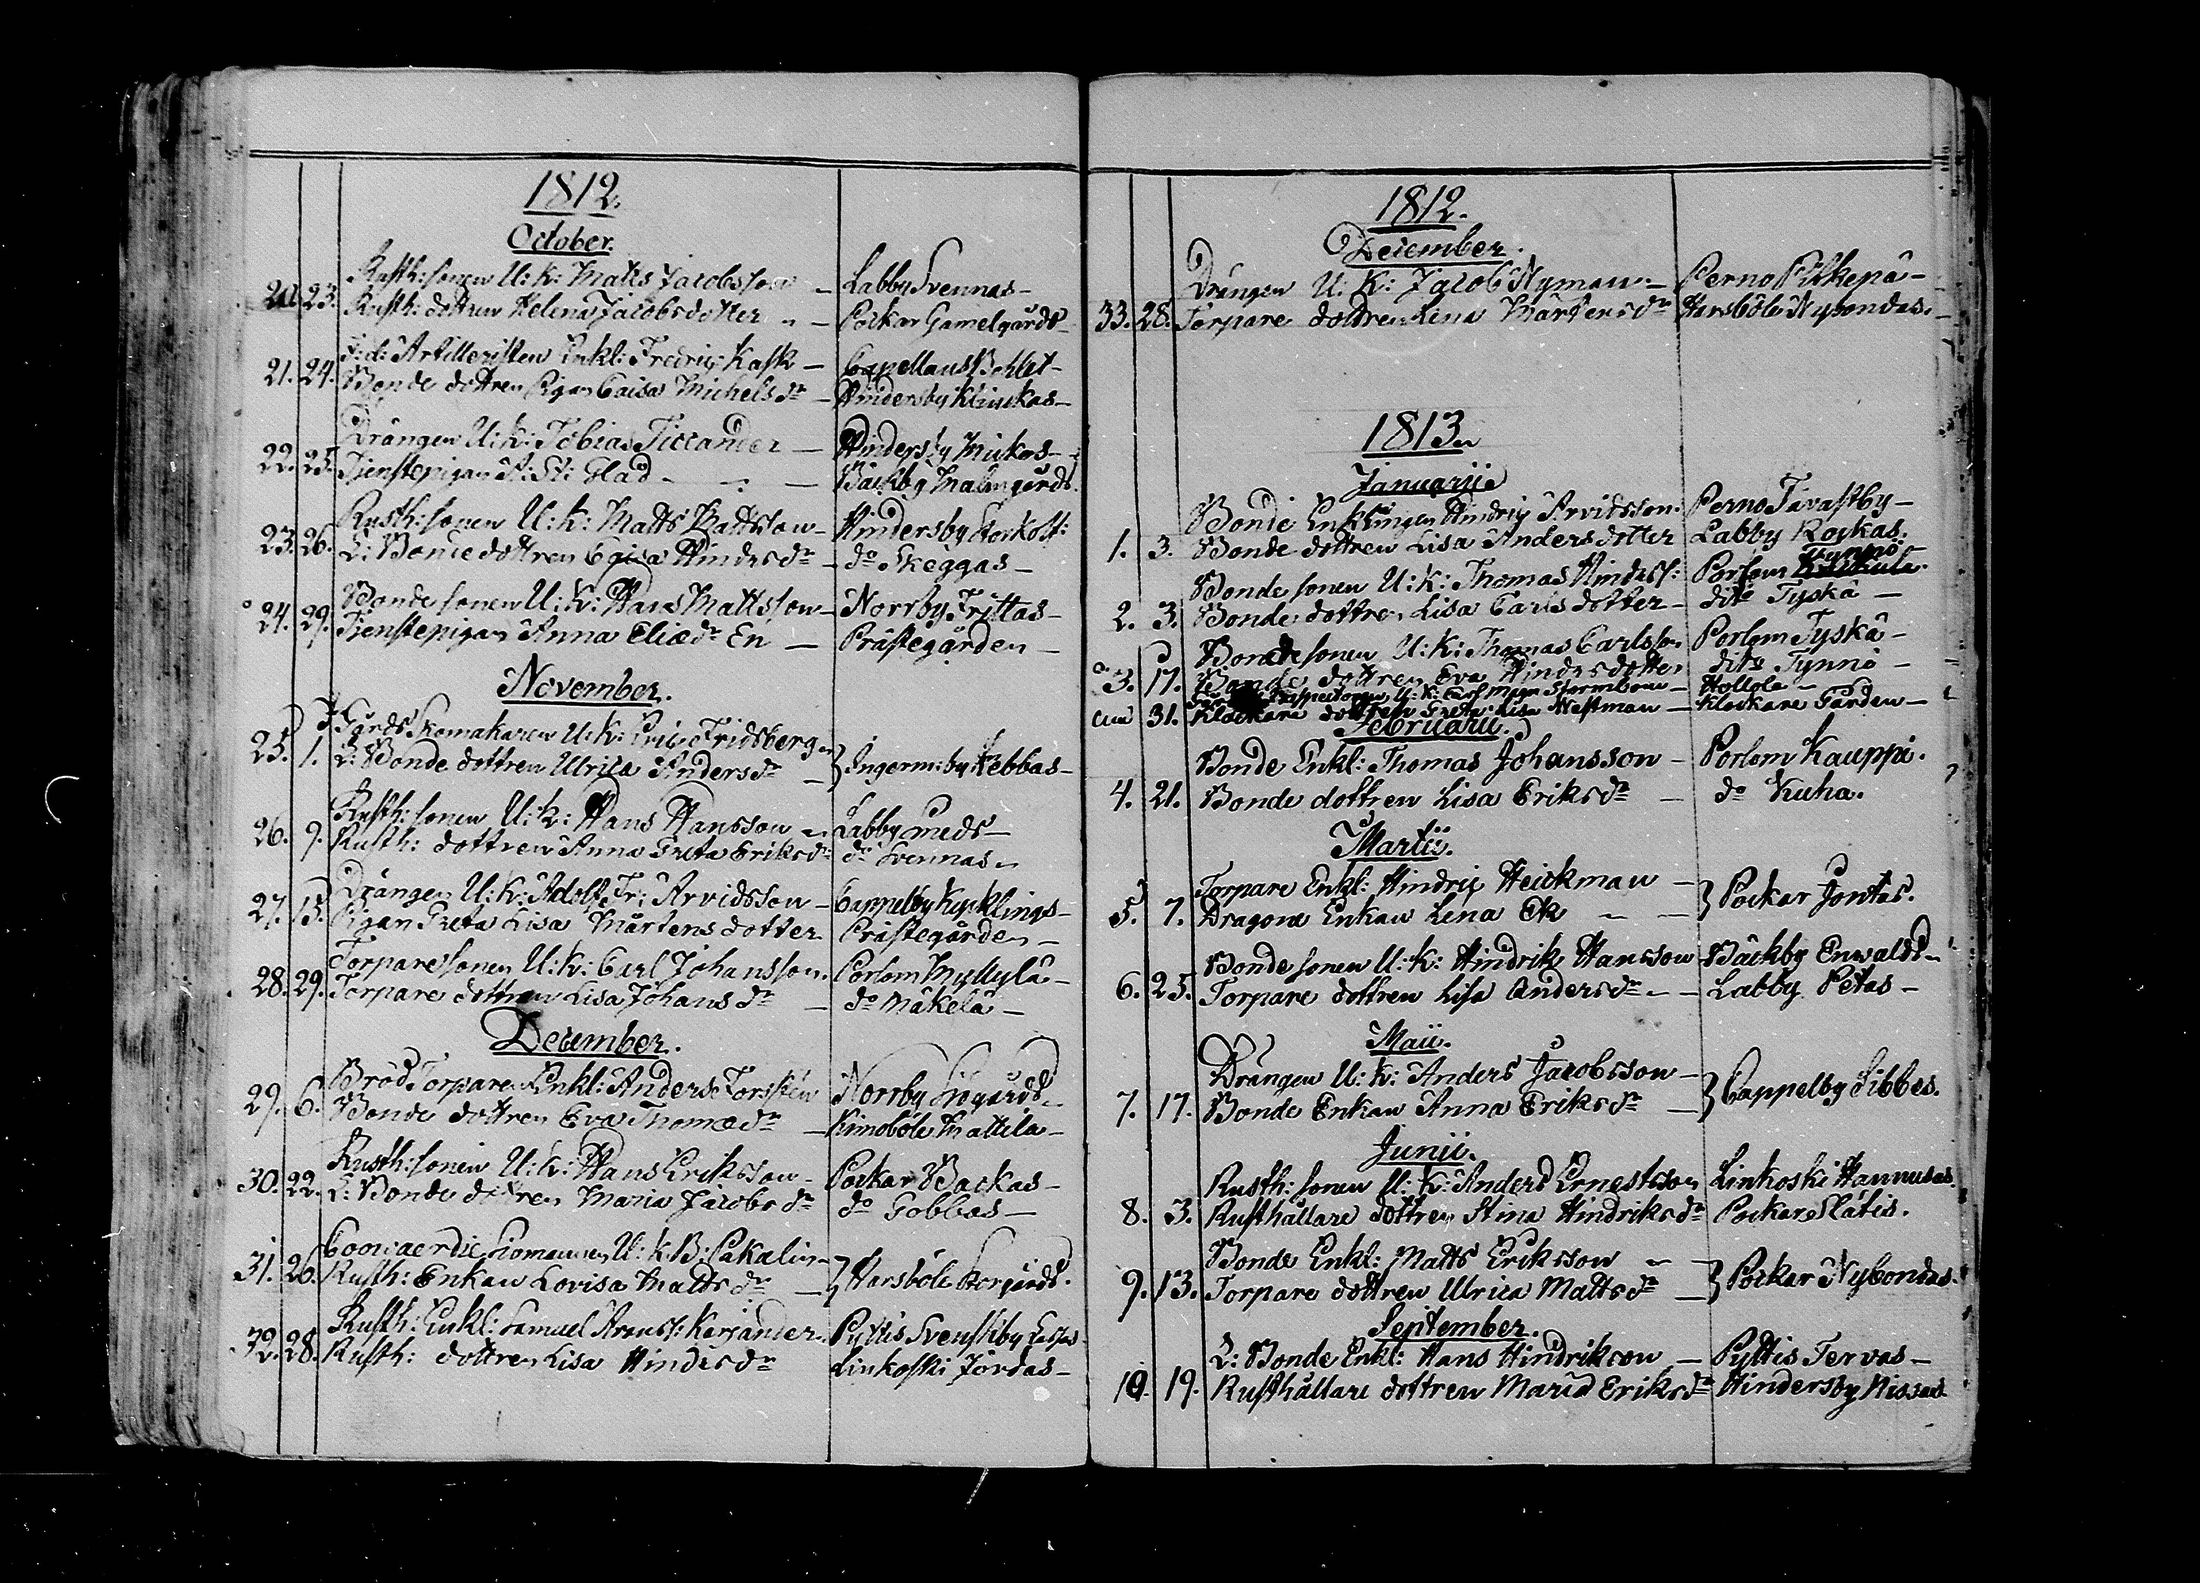 1812.
October.
Rusth: sonen U: K: Matts Jacobsson - Labby Svennas -
20. 23. Rusth: dottren Helena Jacobsdotter - Påckar Gamelgårds
F: d: Artilleristen Enkl: Fredric Kask - Capellans Bohlet -
21. 24. Bonde dottren Pigan Caisa Michels dr - Hindersby Klinckas -
Drängen U: K: Tobias Ticcander - Hindersby Mickos -
22. 25. Tjenstepigan A: St: Glad - - - Bäckby Malmgårds
Rusth: sonen U: K: Matts Mattsson - Hindersby Storkost:
23. 26. L: Bonde dottren Hindrs dr - do Skeggas -
Bonde sonen U: K: Hans Mattsson - Norrby Frittas -
24. 29. Tjenstepigan Anna Eliædr En - Prästegården -
November.
Gårds Skomakaren U: K: Eric Fridsberg -
25. 1. L: Bonde dottren Ulrica Anders dr - } Ingermiby Kebbas -
Rusth: sonen U: K: Hans Hansson - Labby Meds -
26. 9. Rusth: dottren Anna Greta Eriks dr do Svennas -
Drängen U: K: Adolf Fr: Arvidsson - Cappelby Kycklings -
27. 15. Pigan Greta Lisa Mårtens dotter Prästegården -
Torpare sonen U: K: Carl Johansson. Porlom Myllylä -
28. 29. Torpare dottren Lisa Johans dr - do Mäkelä -
December.
Bröd Torparen Enkl: Anders Torstén Norrby Siögårds -
29. 6. Bonde dottren Eva Thomædr - Kimoböle Mattila -
Rusth: sonen U: K: Hans Eriksson - Påckar Backas -
30. 22. L: Bonde dottren Maria Jacobs dr do Gobbas -
Coowaerdie Siömannen U: K: B: Pakalin -
31. 26. Rusth: Enkan Lovisa Matts dr - } Harsböle Storgårds.
Rusth: Enkl: Samuel Karjander. Pyttis Svenskby
32. 28. Rusth: dottren Lisa Hindrs dr Linkoski Jordas -
1812.
December.
Drängen U: K: Jacob Nyman - Perno Pikkepä -
33. 28. Torpare dottren Lena Mårtens dr Harsböle Nybondas. -
1813.
Januarii
Bonde Enklingen Hindric Arvidsson: Perno Tavastby -
1. 3. Bonde dottren Lisa Anders dotter Labby Rockas.
Tynnö -
Bonde sonen U: K: Thomas Hindrss: Porlom
2. 3. Bonde dottren Lisa Carls dotter - dito Tyskä -
Bonde sonen U: K: Thomas Carlsson Porlom Tyskä -
3. 17. Bonde dottren Eva Hindrs dotter dito Tynnö -
Inspectoren U: K: Carl Magn Stormbom - Hollola -
31. Klockare dottren Greta Lisa Westman - Klockare Gården -
Februarii.
Bonde Enkl: Thomas Johansson - Porlom Kauppi.
4. 21. Bonde dottren Lisa Eriks dr - do Kuha.
Martii.
Torpare Enkl: Hindric Heickman -
5. 7. Dragone Enkan Lena Ek - - } Påckar Jontas.
Bonde sonen U: K: Hindrik Hansson Bäckby Enwalds -
6. 25. Torpare dottren Lisa Anders dr - - Labby Petas -
Maii.
Drängen U: K: Anders Jacobsson -
7. 17. Bonde Enkan Anna Eriks dr - } Cappelby Sibbes.
Junii.
Rusth: sonen U: K: Anders Ernestsson Linkoski Hannusas.
8. 3. Rusthållare dottren Stina Hindriks dr Påckar Slätis.
Bonde Enkl: Matts Eriksson - -
9. 13. Torpare dottren Ulrica Matts dr - } Påckar Nybondas.
September.
L: Bonde Enkl: Hans Hindrikson - Pyttis Tervas -
10. 19. Rusthållare dottren Maria Eriks dr Hindersby Nissas